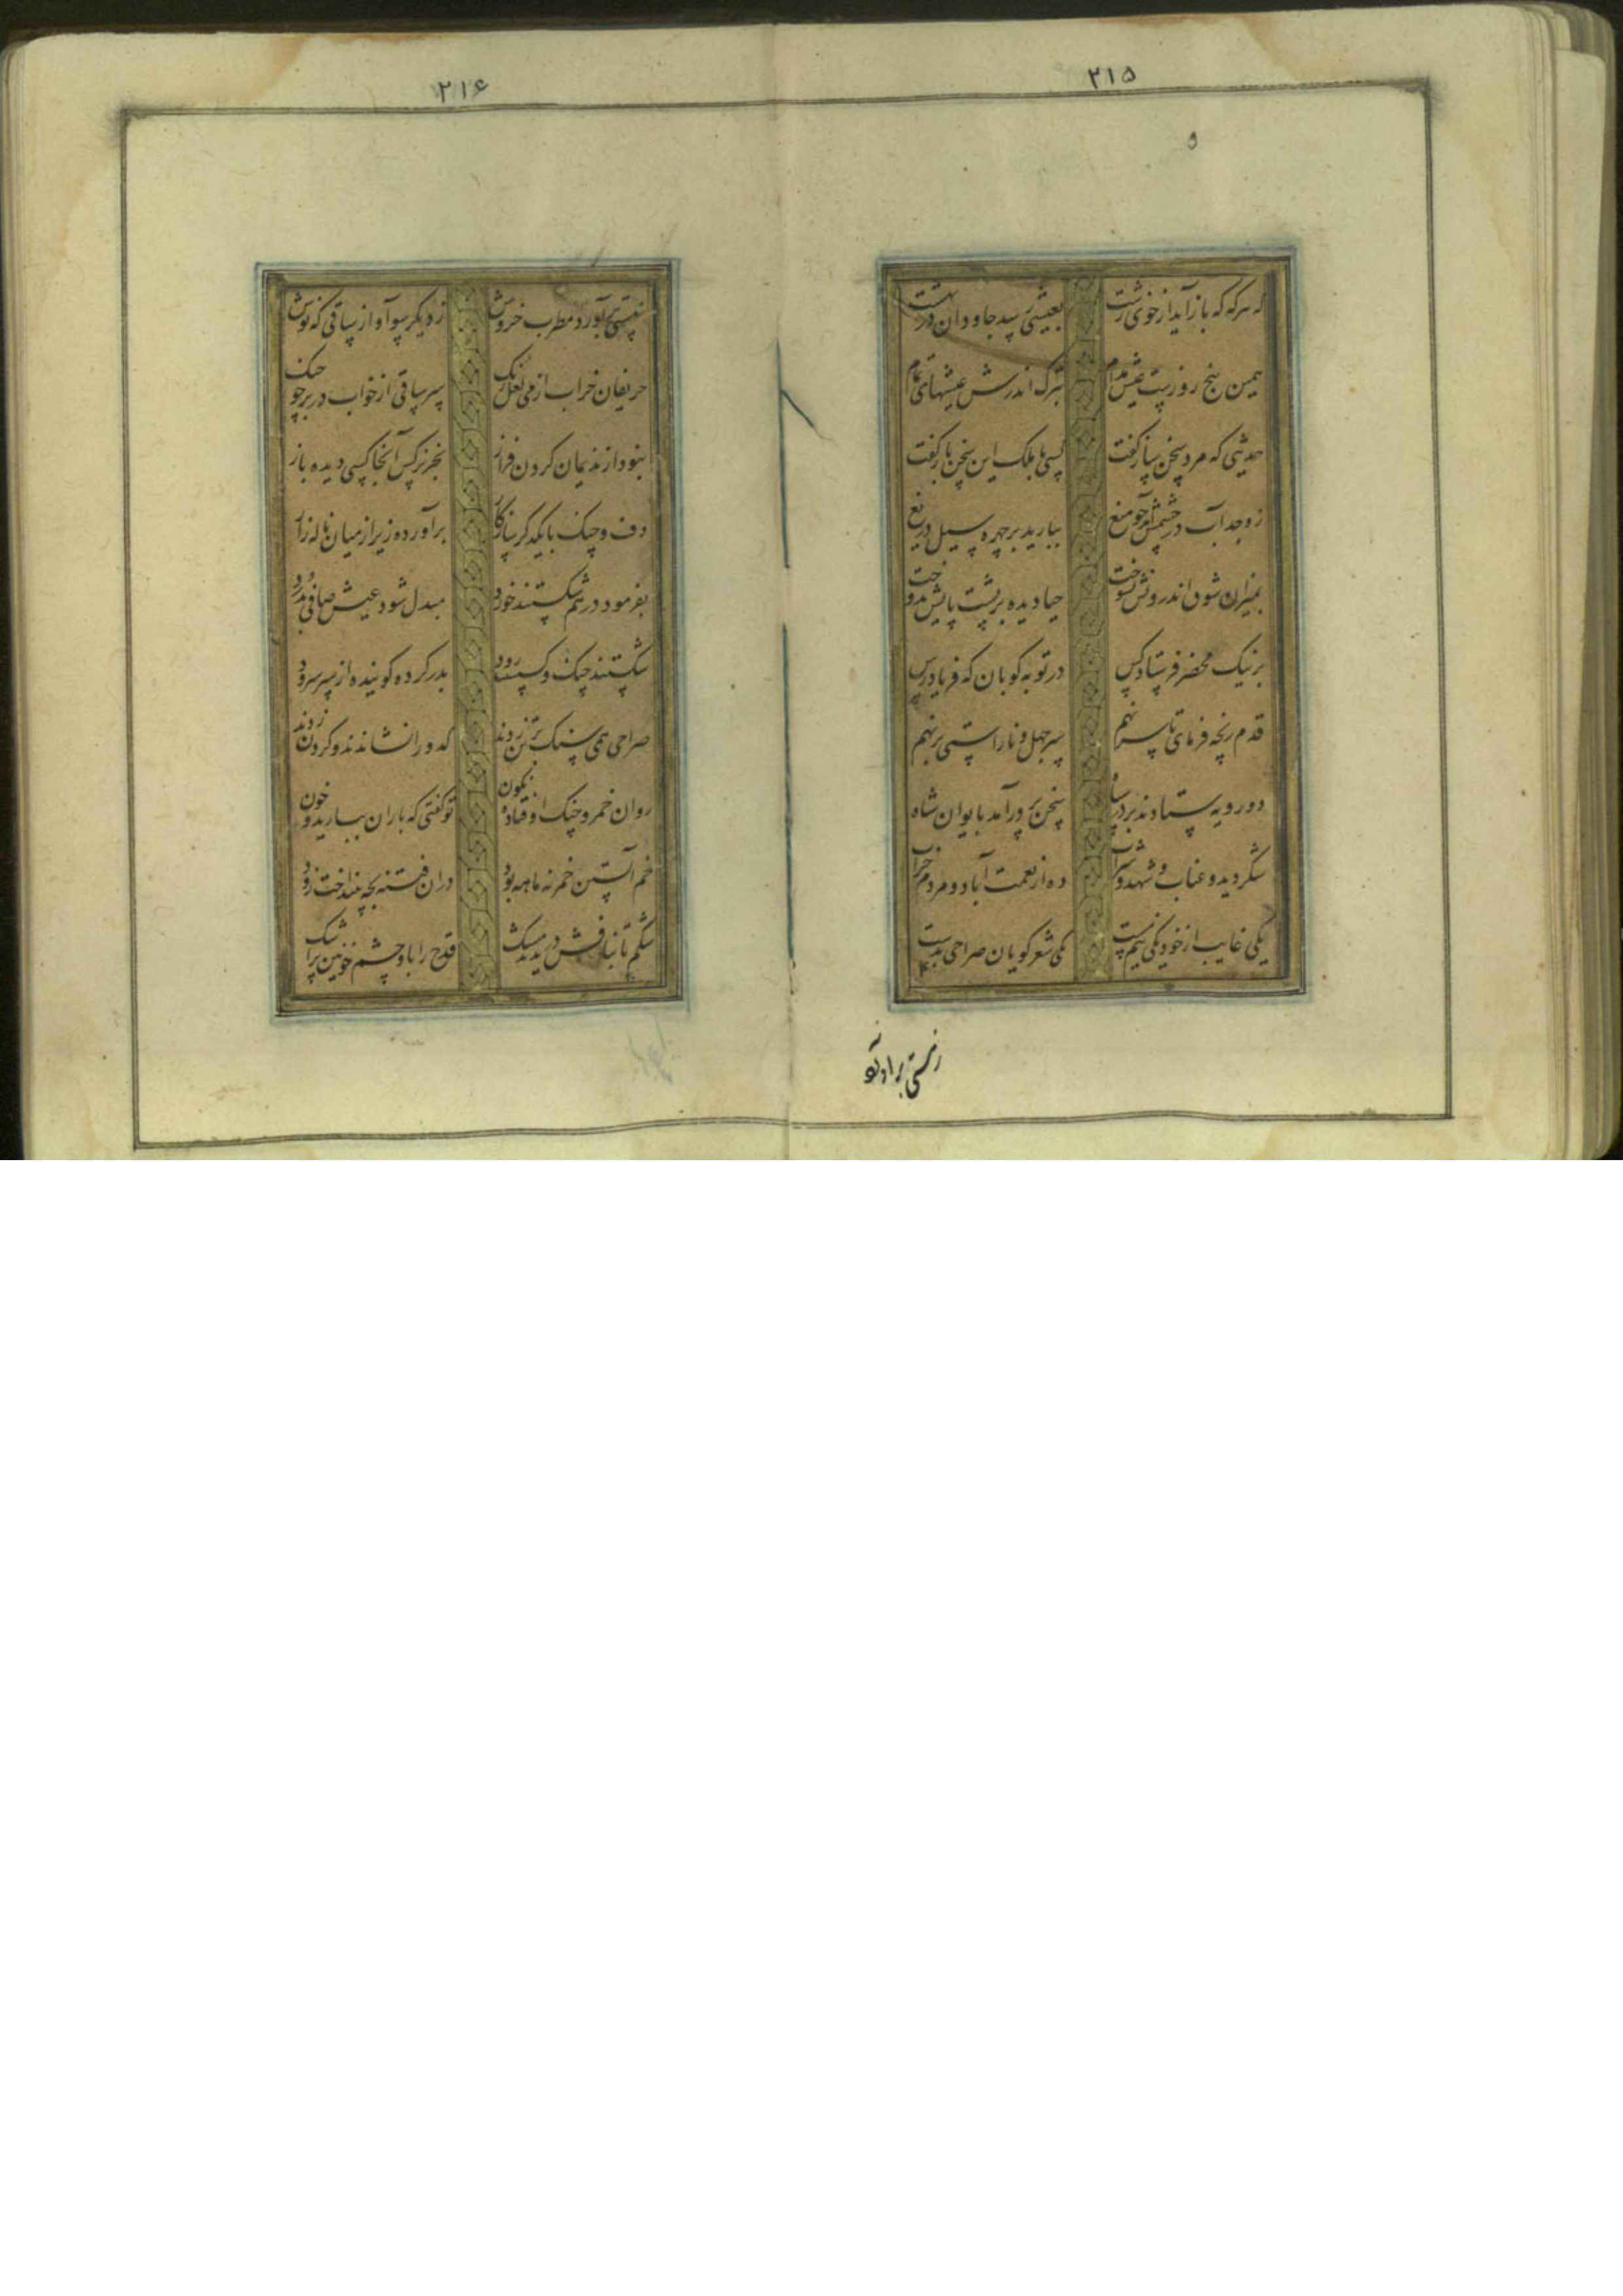 ۲۱۵
۵
که هر که که باز آید از خوی زشت
بعیشی رسد جاودان در بهشت
همین پنج روزیست عیش مدام
بترک اندرش عیشهای تمام
حدیثی که مرد سخن ساز گفت
کسی با ملک این سخن باز گفت
ز وجد آب در چشمش آمد چو میغ
ببارید بر چهره سیل دریغ
بنیران شوق اندرونش بسوخت
حیا دیده بر پشت پایش بدوخت
بر نیک محضر فرستاد کس
در توبه کوبان که فریاد رس
قدم رنجه فرمای تا سر نهم
سر جهل و ناراستی بر نهم
دو رویه ستادند بر در سپاه
سخن پرور آمد بایوان شاه
شکر دید و عناب و شهد و شراب
ده از نعمت آباد و مردم خراب
یکی غایب از خود یکی نیم مست
یکی شعر گویان صراحی بدست
ز سستی بر آورد
۲۱۶
ز سستی بر آورد مطرب خروش
ز دیگر سو آواز ساقی که نوش
حریفان خراب از می لعل رنگ
سر ساقی از خواب در بر چو چنک
نبود از ندیمان گردن فراز
بجز نرگس آنجا کسی دیده باز
دف و چنک با یکدگر سازگار
برآورده زیر از میان ناله زار
بفرمود در هم شکستند خورد
مبدل شود عیش صافی بدرد
شکستند چنک و گسستند رود
بدر کرده گوینده از سر سرود
صراحی همی سنک بر تن زدند
کدو را نشاندند و گردن زدند
روان خمر و چنک اوفتاده نگون
تو گفتی که باران ببارید و خون
خم آبستن خمر نه ماهه بود
در ان فتنه بچه بینداخت زود
شکم تا بنافش دریدند مشک
قدح را با و چشم خونین پر اشک